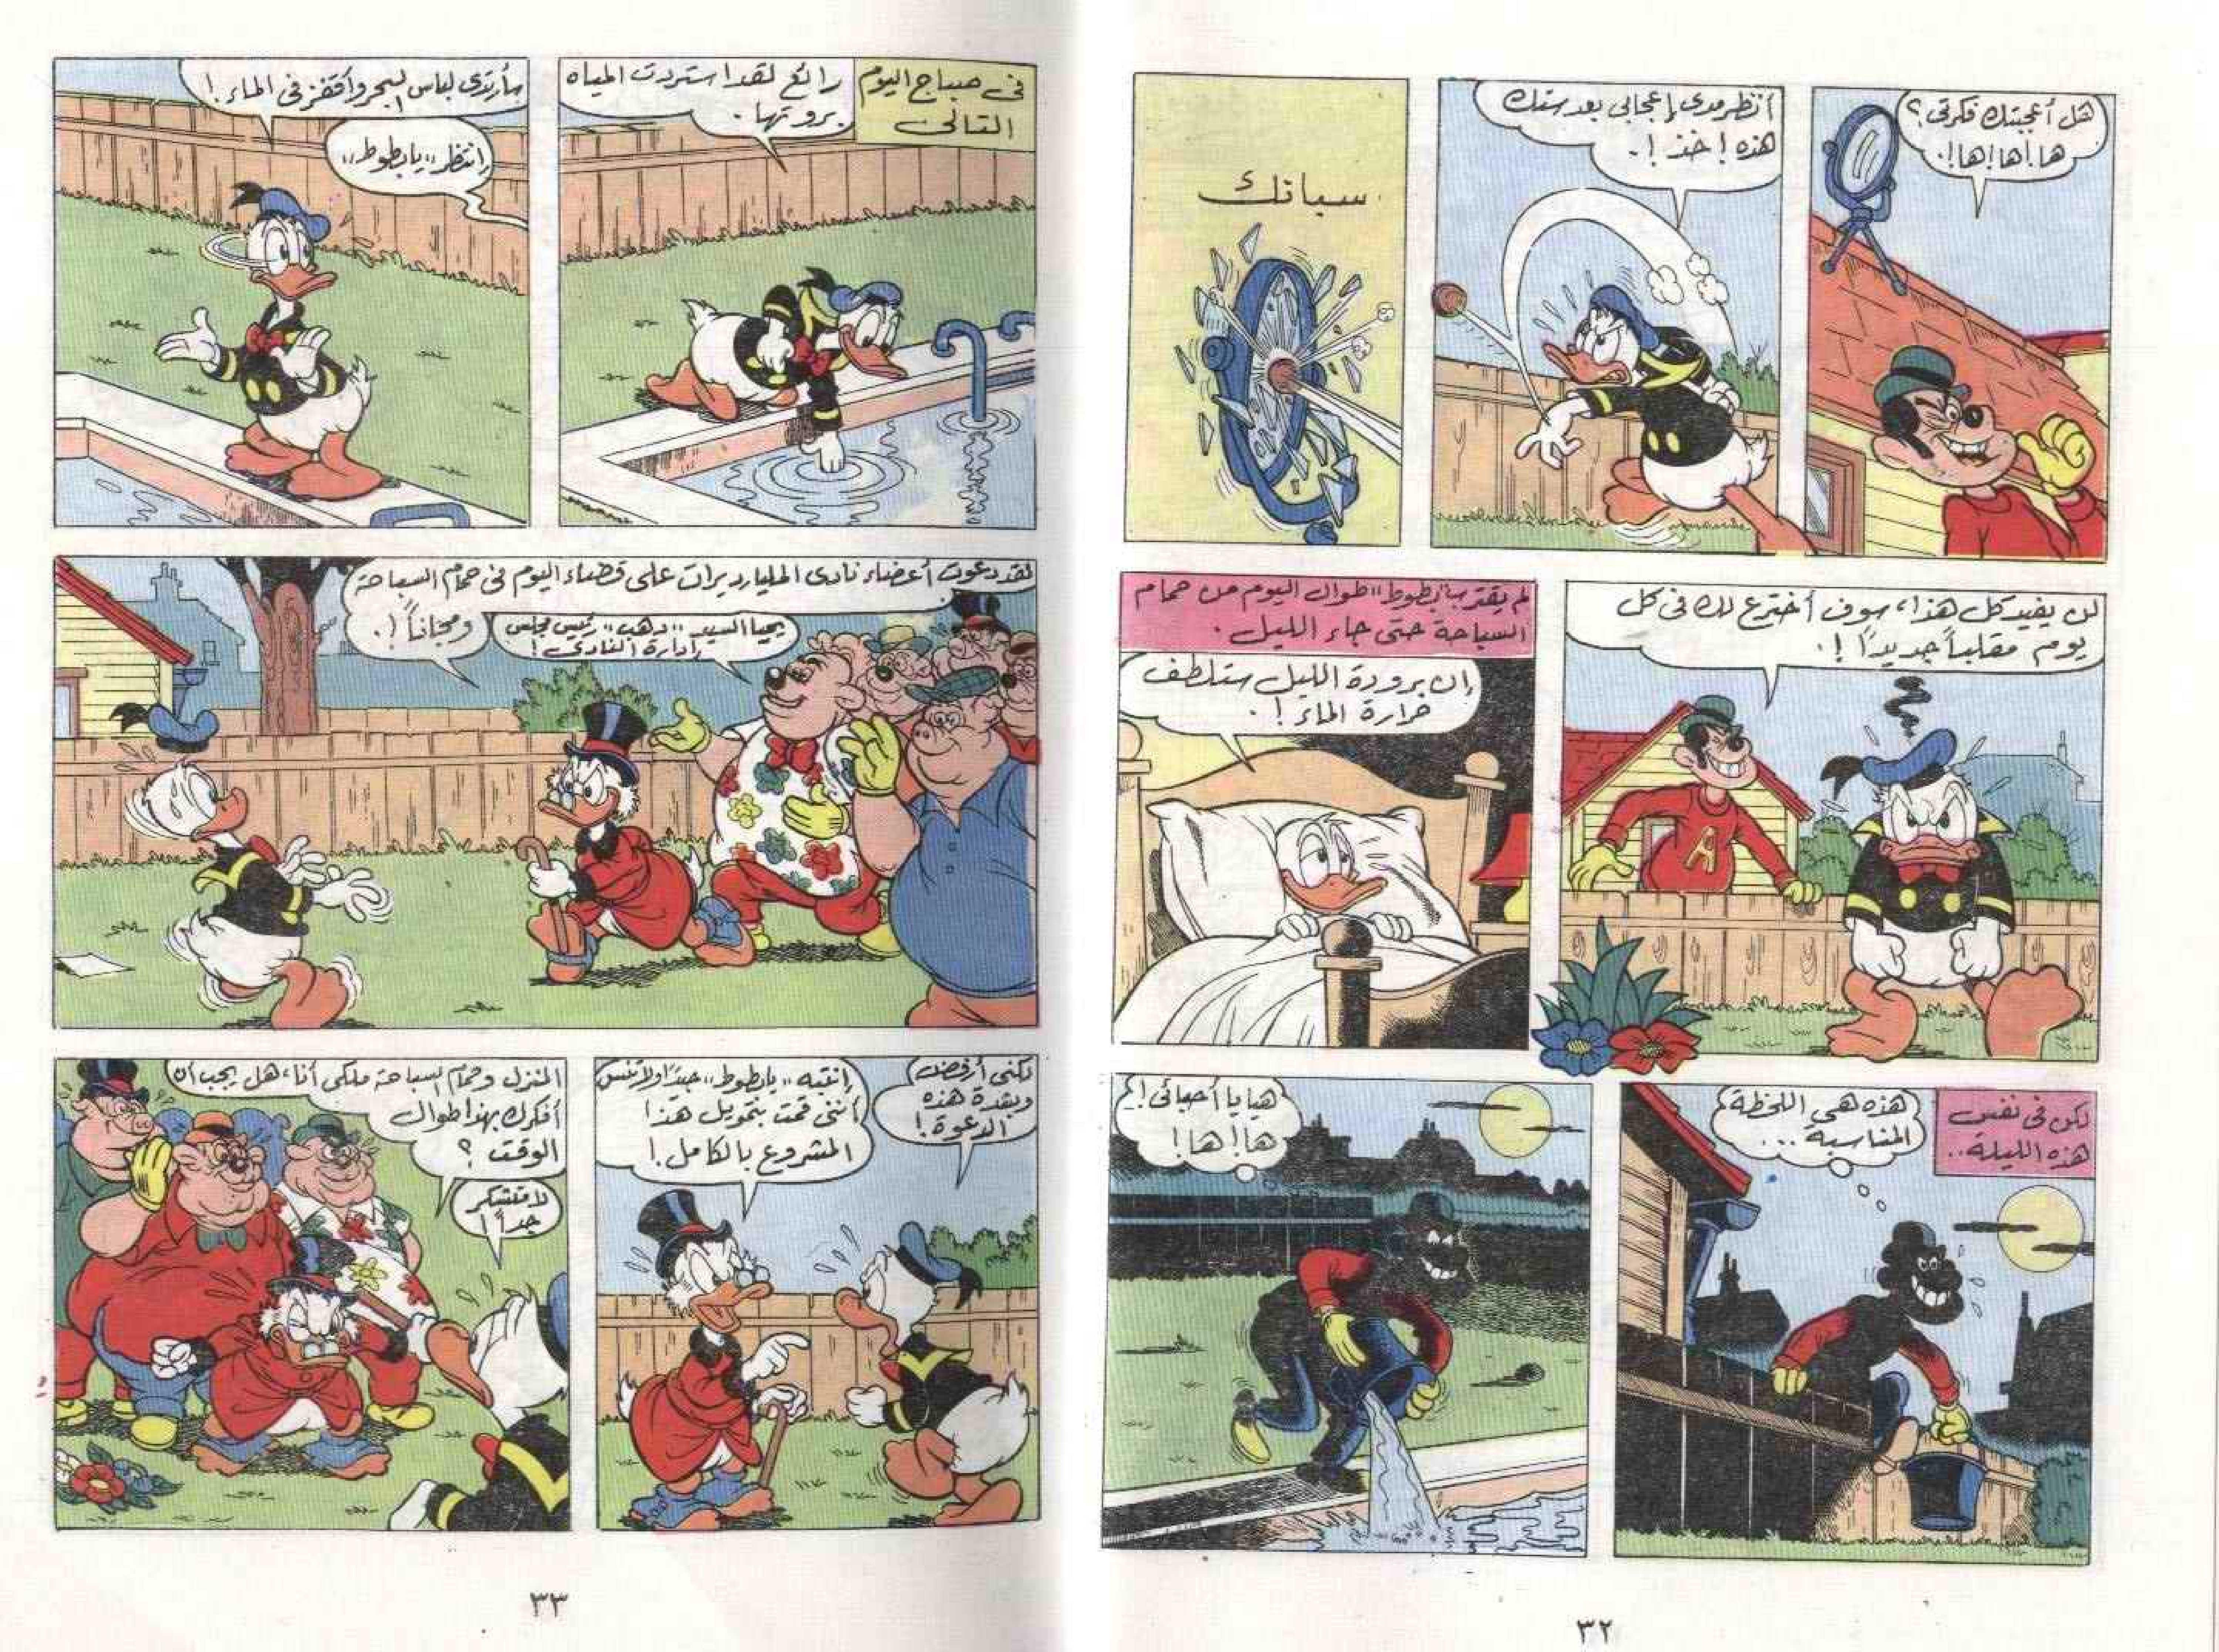 هل أعجبتك فكرتى؟
ها!ها!ها!.
أنظر مدى إعجابى بعد ستك
هذه! خذ!.
سباتك
لن يفيد كل هذا، سوف أخترع لك فى كل
يوم مقلباً جديداً!.
لم يقترب "بطوط" طوال اليوم من حمام
السباحة حتى جاء الليل.
إن برودة الليل ستلطف
حرارة الماء!.
لكن فى نفس
هذه الليلة..
هذه هى اللحظة
المناسبة...
هيا يا أحبائى!
ها!ها!
٣٢
فى صباح اليوم
التالى
رائع لقد استردت المياه
برودتها.
سأرتدى لباس البحر وأقفز فى الماء!
إنتظر "يا بطوط"
لقد دعوت أعضاء نادى المليارديرات على قضاء اليوم فى حمام السباحة
ومجاناً!.
يحيا السيد "دهب" رئيس مجلس
إدارة النادى!
لكنى أرفض
وبشدة هذه
الدعوة!
إنتبه "يا بطوط" جيداً ولا تنس
أننى قمت بتمويل هذا
المشروع بالكامل!
المنزل وحمام السباحة ملكى أنا، هل يجب أن
أذكرك بهذا طوال
الوقت؟
لا متشكر
جداً!
٣٣